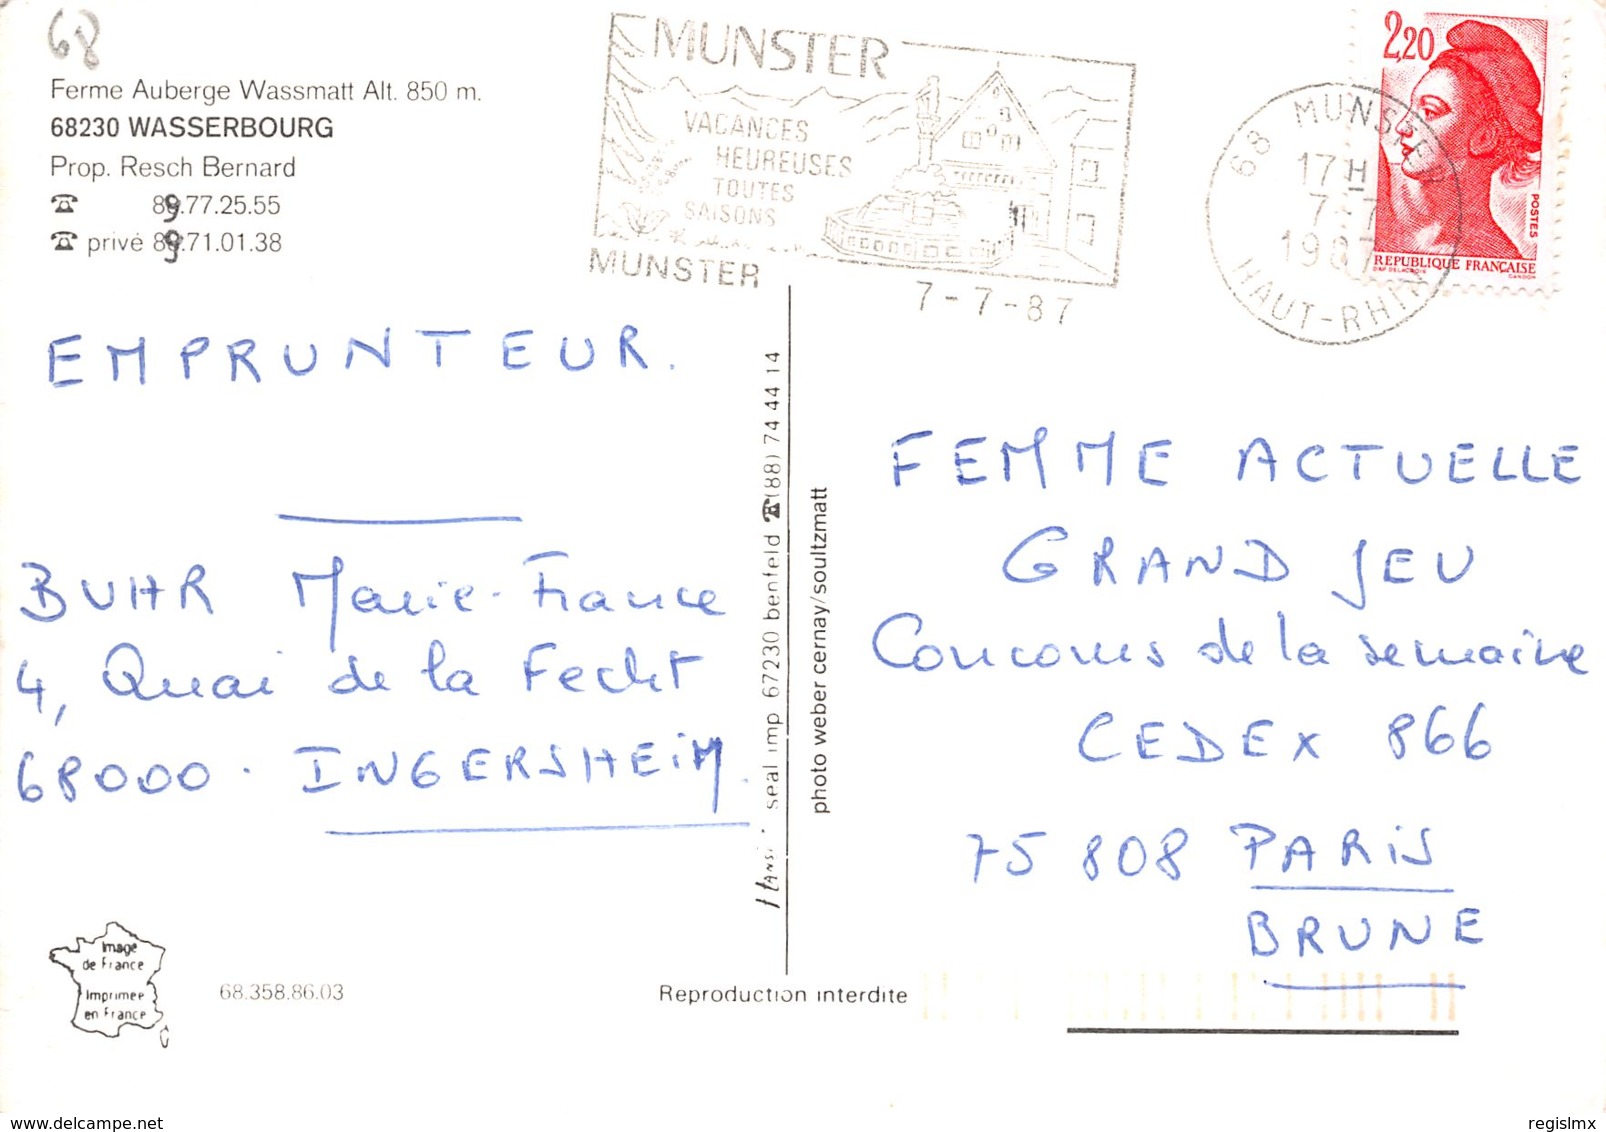 68
Ferme Auberge Wassmatt Alt. 850 m.
68230 WASSERBOURG
Prop. Resch Bernard
☎ 89.77.25.55
☎ privé 89.71.01.38
MUNSTER
VACANCES
HEUREUSES
TOUTES
SAISONS
MUNSTER
7-7-87
68 MUNSTER
17H
7-7
1987
HAUT-RHIN
2,20
POSTES
REPUBLIQUE FRANÇAISE
D'AP DELACROIX
GANDON
EMPRUNTEUR.
BUHR Marie-France
4, Quai de la Fecht
68000. INGERSHEIM.
seal imp 67230 benfeld ☎ (88) 74 44 14
photo weber cernay/soultzmatt
FEMME ACTUELLE
GRAND JEU
Concours de la semaine
CEDEX 866
75 808 PARIS
BRUNE
Image
de France
Imprimée
en France
68.358.86.03
Reproduction interdite
delcampe.net
regislmx